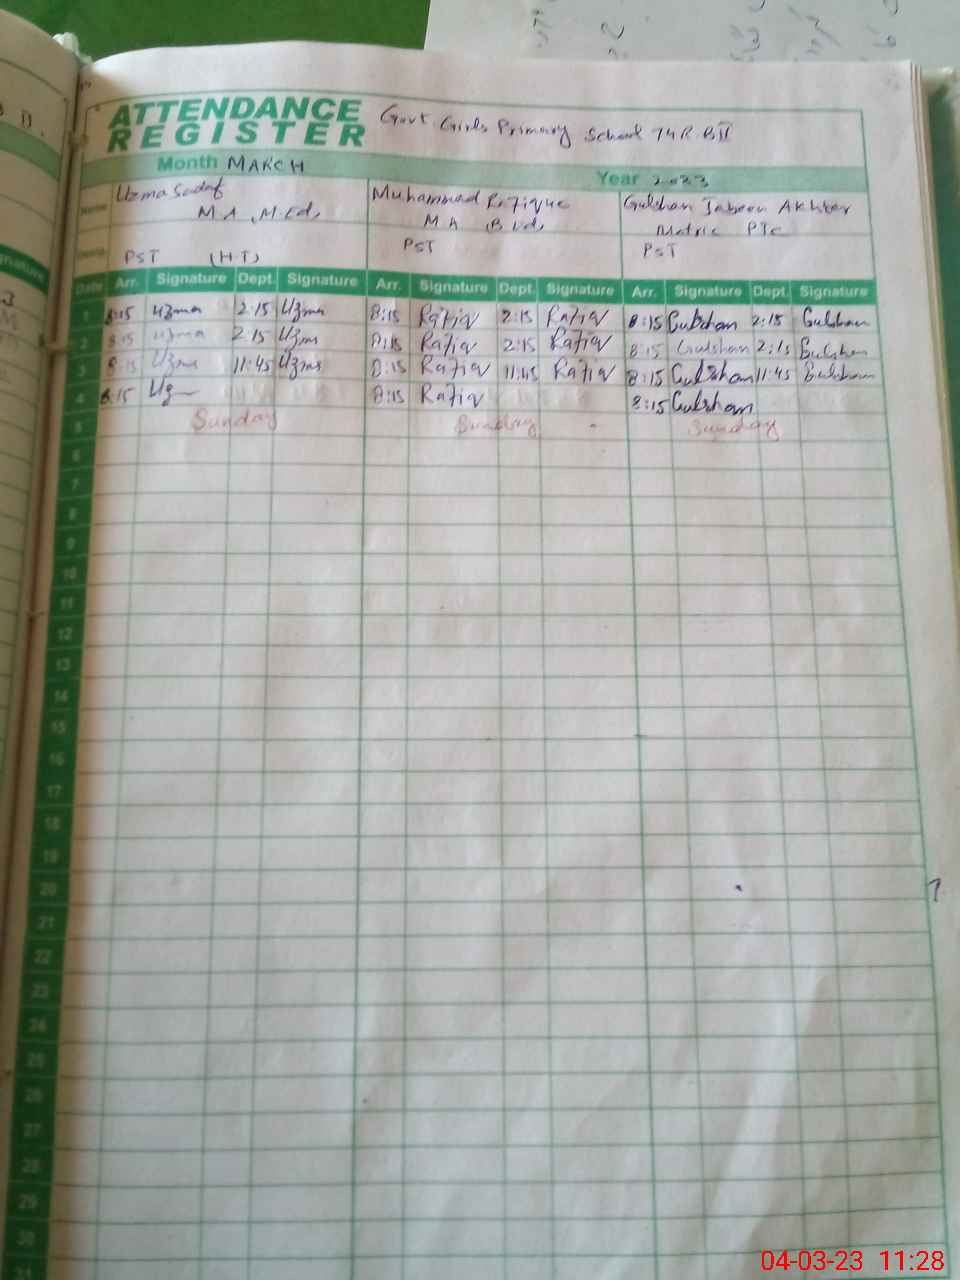 ATTENDANCE REGISTER Govt Girls Primary School 74 R.B II
Month MARCH Year 2023
Name Uzma Sadaf Muhammad Rafique Gulshan Jabeen Akhter
M.A, M.Ed, M A, B.Ed, Matric PTC
PST (H.T) PST PST
Date Arr. Signature Dept. Signature Arr. Signature Dept. Signature Arr. Signature Dept. Signature
1 8:15 Uzma 2:15 Uzma 8:15 Rafiq 2:15 Rafiq 8:15 Gulshan 2:15 Gulshan
2 8:15 Uzma 2:15 Uzma 8:15 Rafiq 2:15 Rafiq 8:15 Gulshan 2:15 Gulshan
3 8:15 Uzma 11:45 Uzma 8:15 Rafiq 11:45 Rafiq 8:15 Gulshan 11:45 Gulshan
4 8:15 Uz 8:15 Rafiq 8:15 Gulshan
5 Sunday Sunday Sunday
6
7
8
9
10
11
12
13
14
15
16
17
18
19
20
21
22
23
24
25
26
27
28
29
30
31
04-03-23 11:28